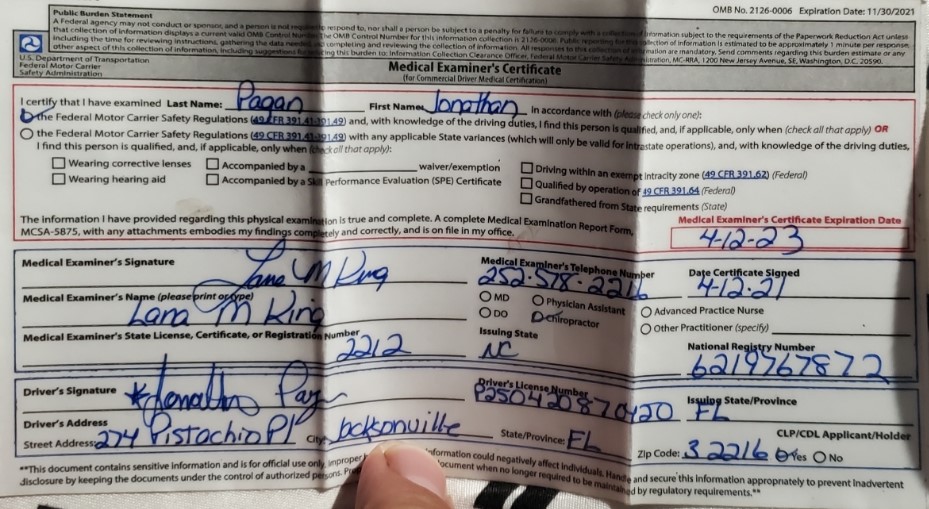 OMB No. 2126-0006 Expiration Date: 11/30/2021
Public Burden Statement
A Federal agency may not conduct or sponsor, and a person is not required to respond to, nor shall a person be subject to a penalty for failure to comply with a collection of information subject to the requirements of the Paperwork Reduction Act unless
that collection of information displays a current valid OMB Control Number. The OMB Control Number for this information collection is 2126-0006. Public reporting for this collection of information is estimated to be approximately 1 minute per response,
including the time for reviewing instructions, gathering the data needed, and completing and reviewing the collection of information. All responses to this collection of information are mandatory. Send comments regarding this burden estimate or any
other aspect of this collection of information, including suggestions for reducing this burden to: Information Collection Clearance Officer, Federal Motor Carrier Safety Administration, MC-RRA, 1200 New Jersey Avenue, SE, Washington, D.C. 20590.
U.S. Department of Transportation
Federal Motor Carrier
Safety Administration
Medical Examiner's Certificate
(for Commercial Driver Medical Certification)
I certify that I have examined Last Name: Pagan First Name: Jonathan in accordance with (please check only one):
the Federal Motor Carrier Safety Regulations (49 CFR 391.41-391.49) and, with knowledge of the driving duties, I find this person is qualified, and, if applicable, only when (check all that apply) OR
the Federal Motor Carrier Safety Regulations (49 CFR 391.41-391.49) with any applicable State variances (which will only be valid for intrastate operations), and, with knowledge of the driving duties,
I find this person is qualified, and, if applicable, only when (check all that apply):
Wearing corrective lenses Accompanied by a waiver/exemption Driving within an exempt intracity zone (49 CFR 391.62) (Federal)
Wearing hearing aid Accompanied by a Skill Performance Evaluation (SPE) Certificate Qualified by operation of 49 CFR 391.64 (Federal)
Grandfathered from State requirements (State)
The information I have provided regarding this physical examination is true and complete. A complete Medical Examination Report Form,
MCSA-5875, with any attachments embodies my findings completely and correctly, and is on file in my office.
Medical Examiner's Certificate Expiration Date
4-12-23
Medical Examiner's Signature Lana M King
Medical Examiner's Telephone Number
252-578-2216
Date Certificate Signed
4-12-21
Medical Examiner's Name (please print or type)
Lana M King
MD Physician Assistant Advanced Practice Nurse
DO Chiropractor Other Practitioner (specify)
Medical Examiner's State License, Certificate, or Registration Number
2212
Issuing State
NC
National Registry Number
6219767872
Driver's Signature *Jonathan Pag
Driver's License Number
P250420870420
Issuing State/Province
FL
Driver's Address
Street Address: 274 Pistachio Pl City: Jacksonville State/Province: FL Zip Code: 32216
CLP/CDL Applicant/Holder
Yes No
**This document contains sensitive information and is for official use only. Improper information could negatively affect individuals. Handle and secure this information appropriately to prevent inadvertent
disclosure by keeping the documents under the control of authorized persons. document when no longer required to be maintained by regulatory requirements.**